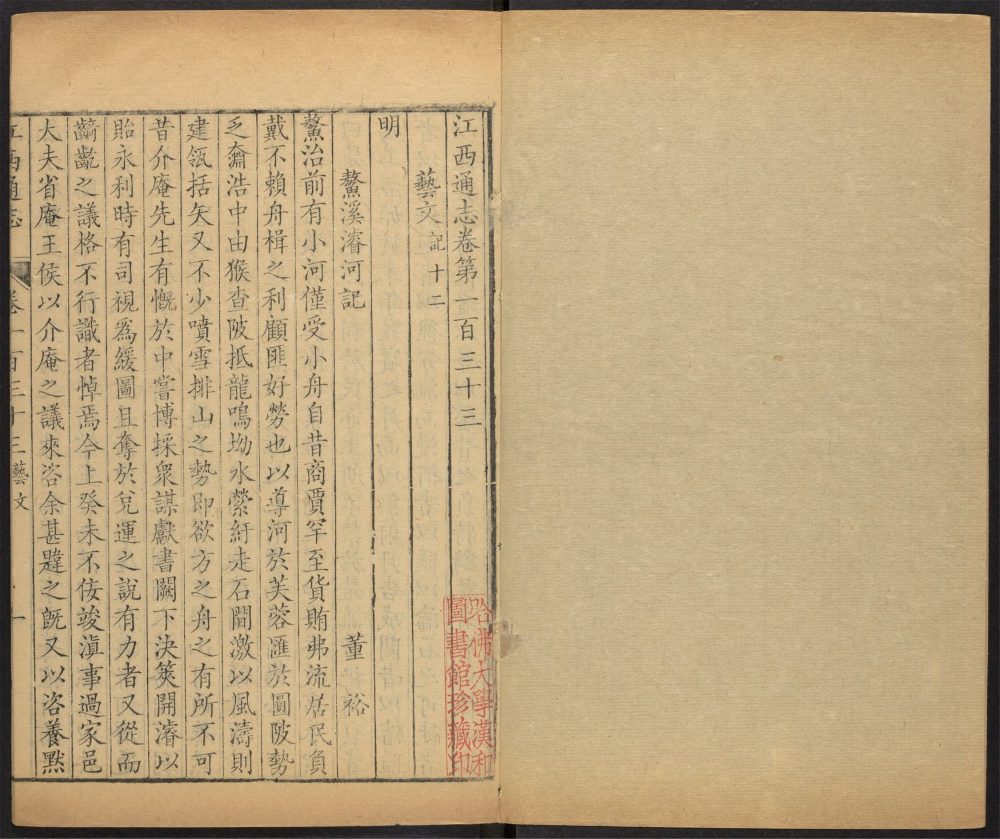 江西通志卷第一百三十三
藝文 記十二
明
鰲溪濬河記 董裕
鰲治前有小河僅受小舟自昔商賈罕至貨賄弗流居民負
戴不賴舟楫之利顧匪好勞也以導河於芙蓉匯於圓陂勢
乏奫浩中由猴查陂抵龍鳴坳水縈紆走石間激以風濤則
建瓴括矢又不少噴雪排山之勢即欲方之舟之有所不可
昔介庵先生有慨於中嘗博採衆謀獻書闕下決筴開濬以
貽永利時有司視爲緩圖且奪於兌運之說有力者又從而
齮齕之議格不行識者悼焉今上癸未不佞竣滇事過家邑
大夫省庵王侯以介庵之議來咨余甚韙之既又以咨養默
江西通志 卷一百三十三 藝文 一
哈佛大學漢和
圖書館珍藏印